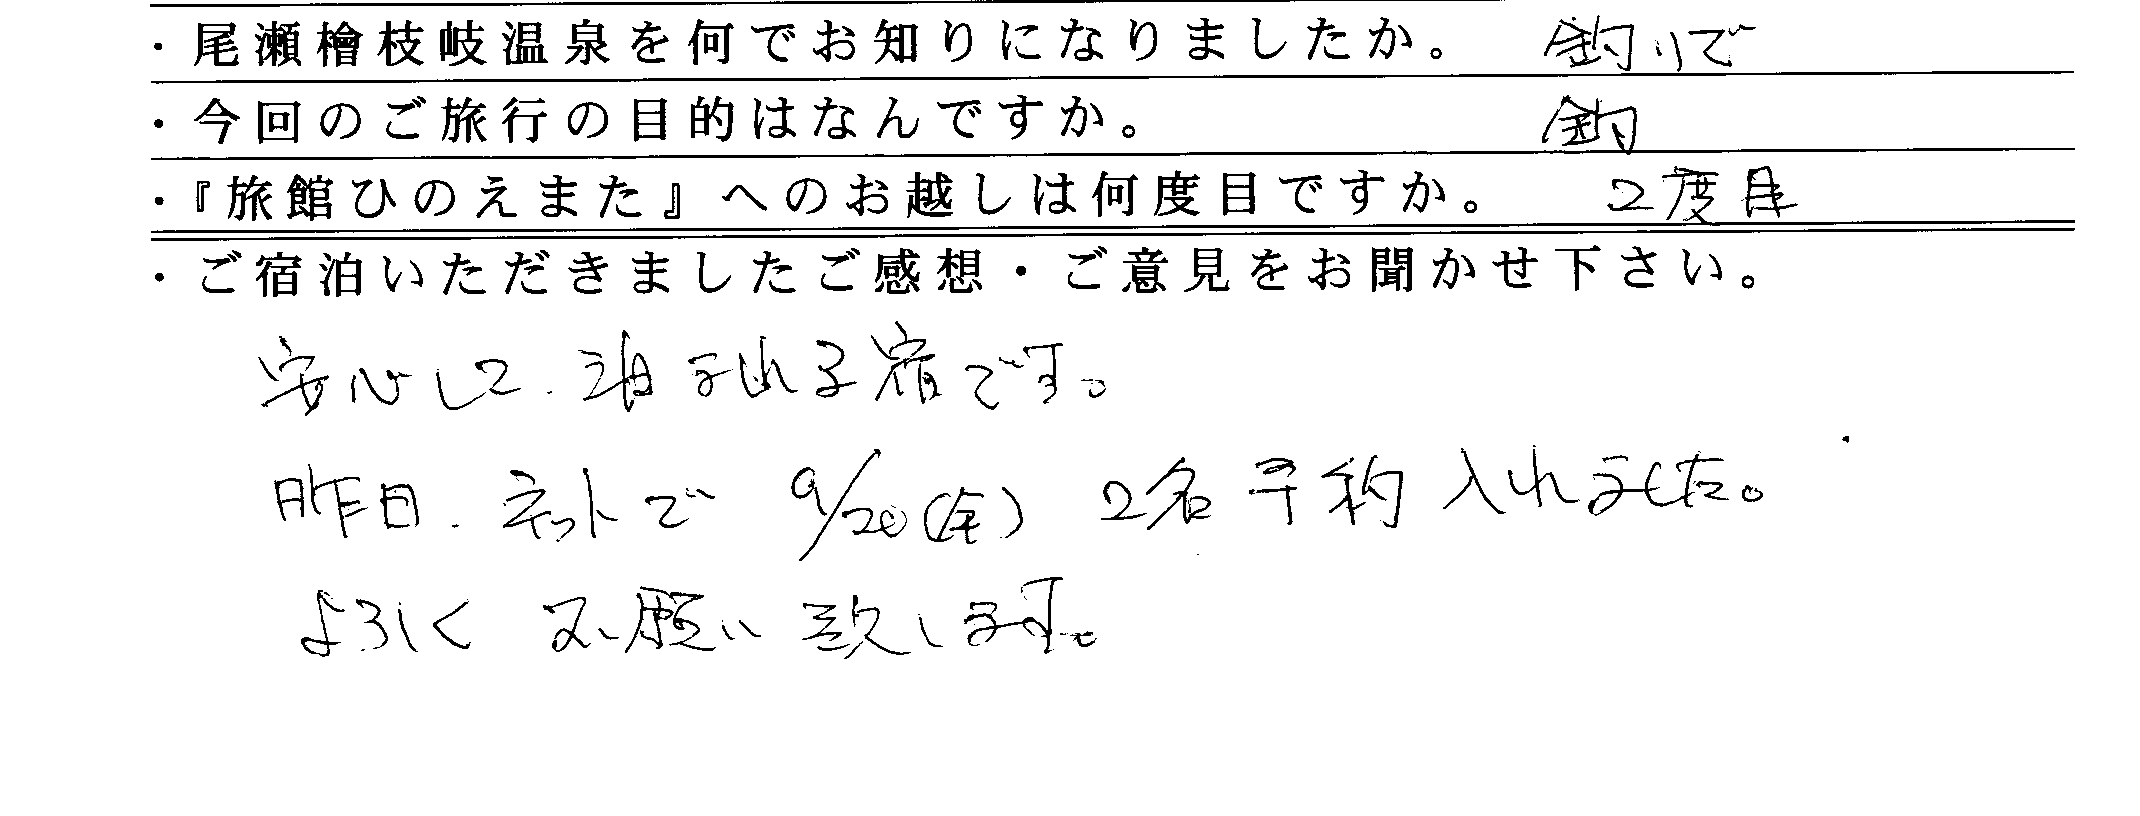 ・尾瀬檜枝岐温泉を何でお知りになりましたか。 釣りで
・今回のご旅行の目的はなんですか。 釣
・『旅館ひのえまた』へのお越しは何度目ですか。 2度目
・ご宿泊いただきましたご感想・ご意見をお聞かせ下さい。
安心して、泊まれる宿です。
昨日、ネットで 9/20(金) 2名予約入れました。
よろしく お願い致します。